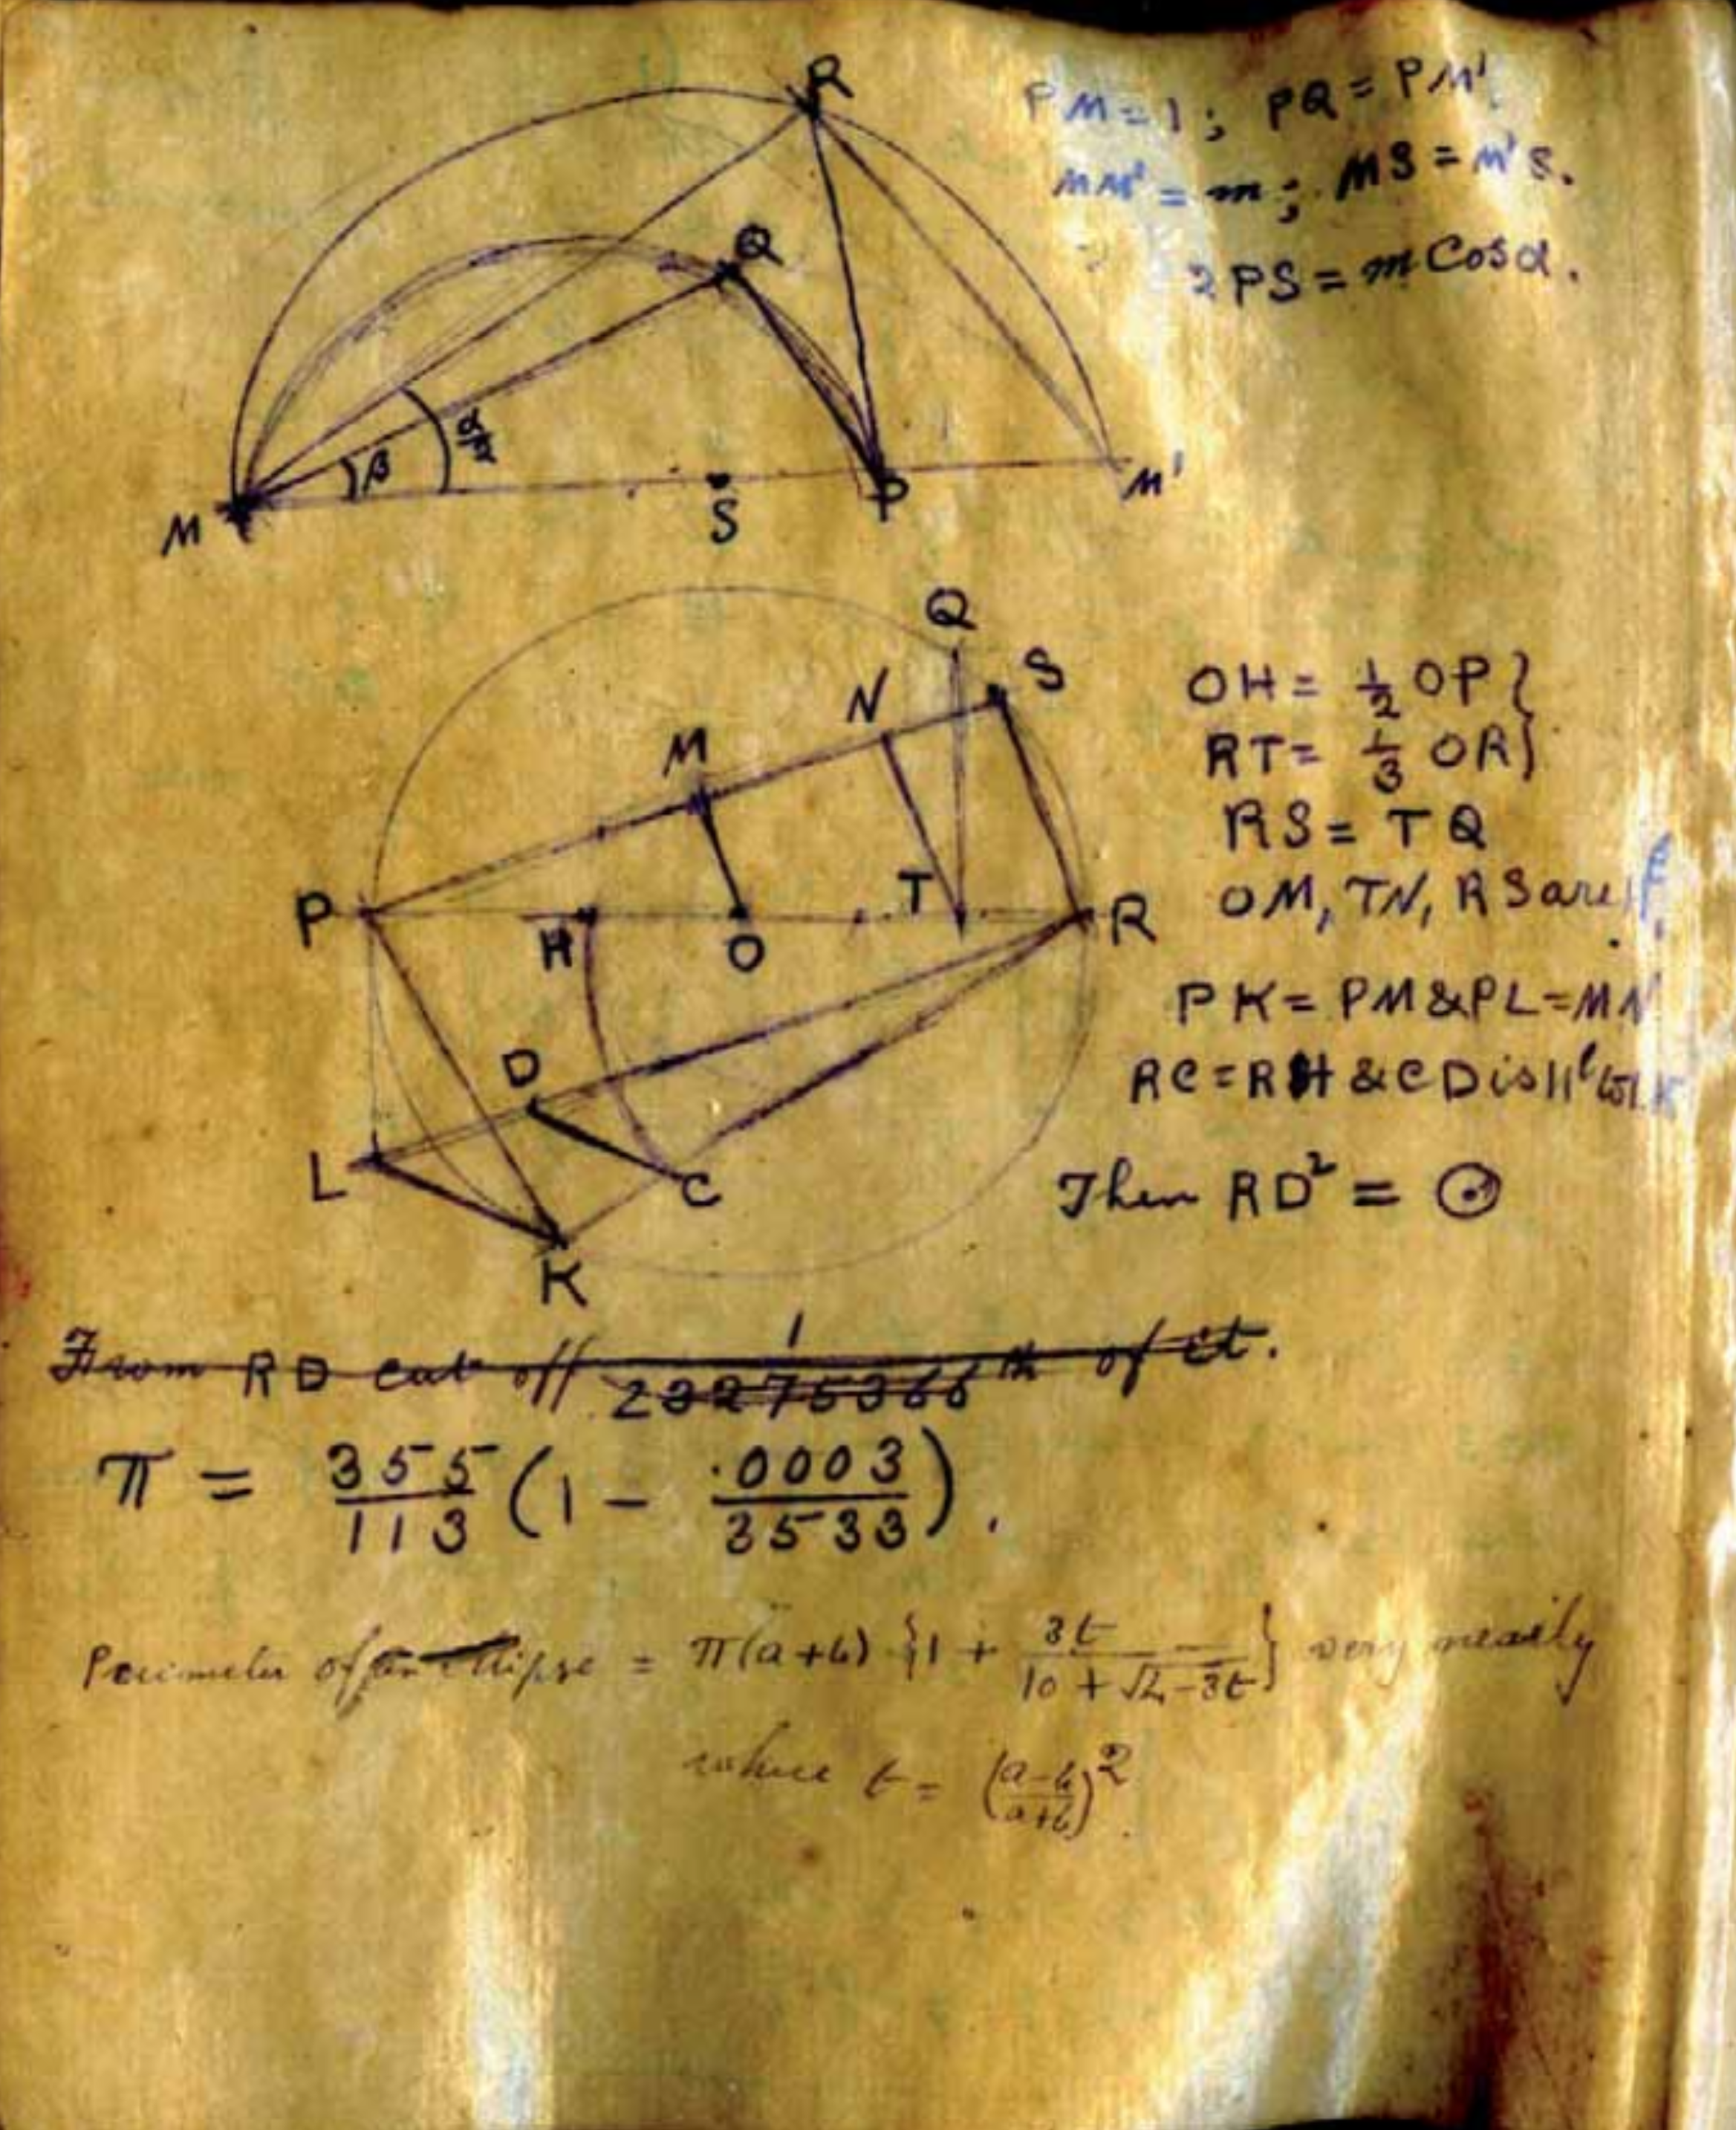 R
PM = 1 ; PQ = PM'.
MM' = m ; MS = M'S.
2PS = m Cosα.
Q
α/2
β
M
S
P
M'
Q
S
N
M
OH = 1/2 OP }
RT = 1/3 OR }
RS = TQ
OM, TN, RS are
P
H
O
T
R
PK = PM & PL = MN
RC = RH & CD is ||l
D
L
C
K
Then RD² = ⊙
From RD cut off 1/23275366 th of it.
π = 355/113 (1 − .0003/3533).
Perimeter of an ellipse = π(a+b) {1 + 3t/(10 + √4−3t)} very nearly
where t = ((a−b)/(a+b))².